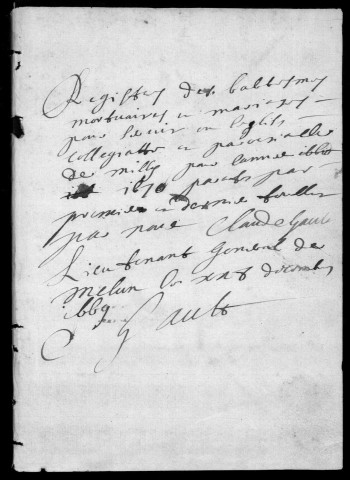 Registres des baltesmes
mortuaires et mariages
pour servir en leglise
collegialle et parroissialle
de milly pour lannee
1670 par
premier et dernier feuillet
par nous Claude Gault
Lieutenant General de
melun le xx decembre
1669
Gault